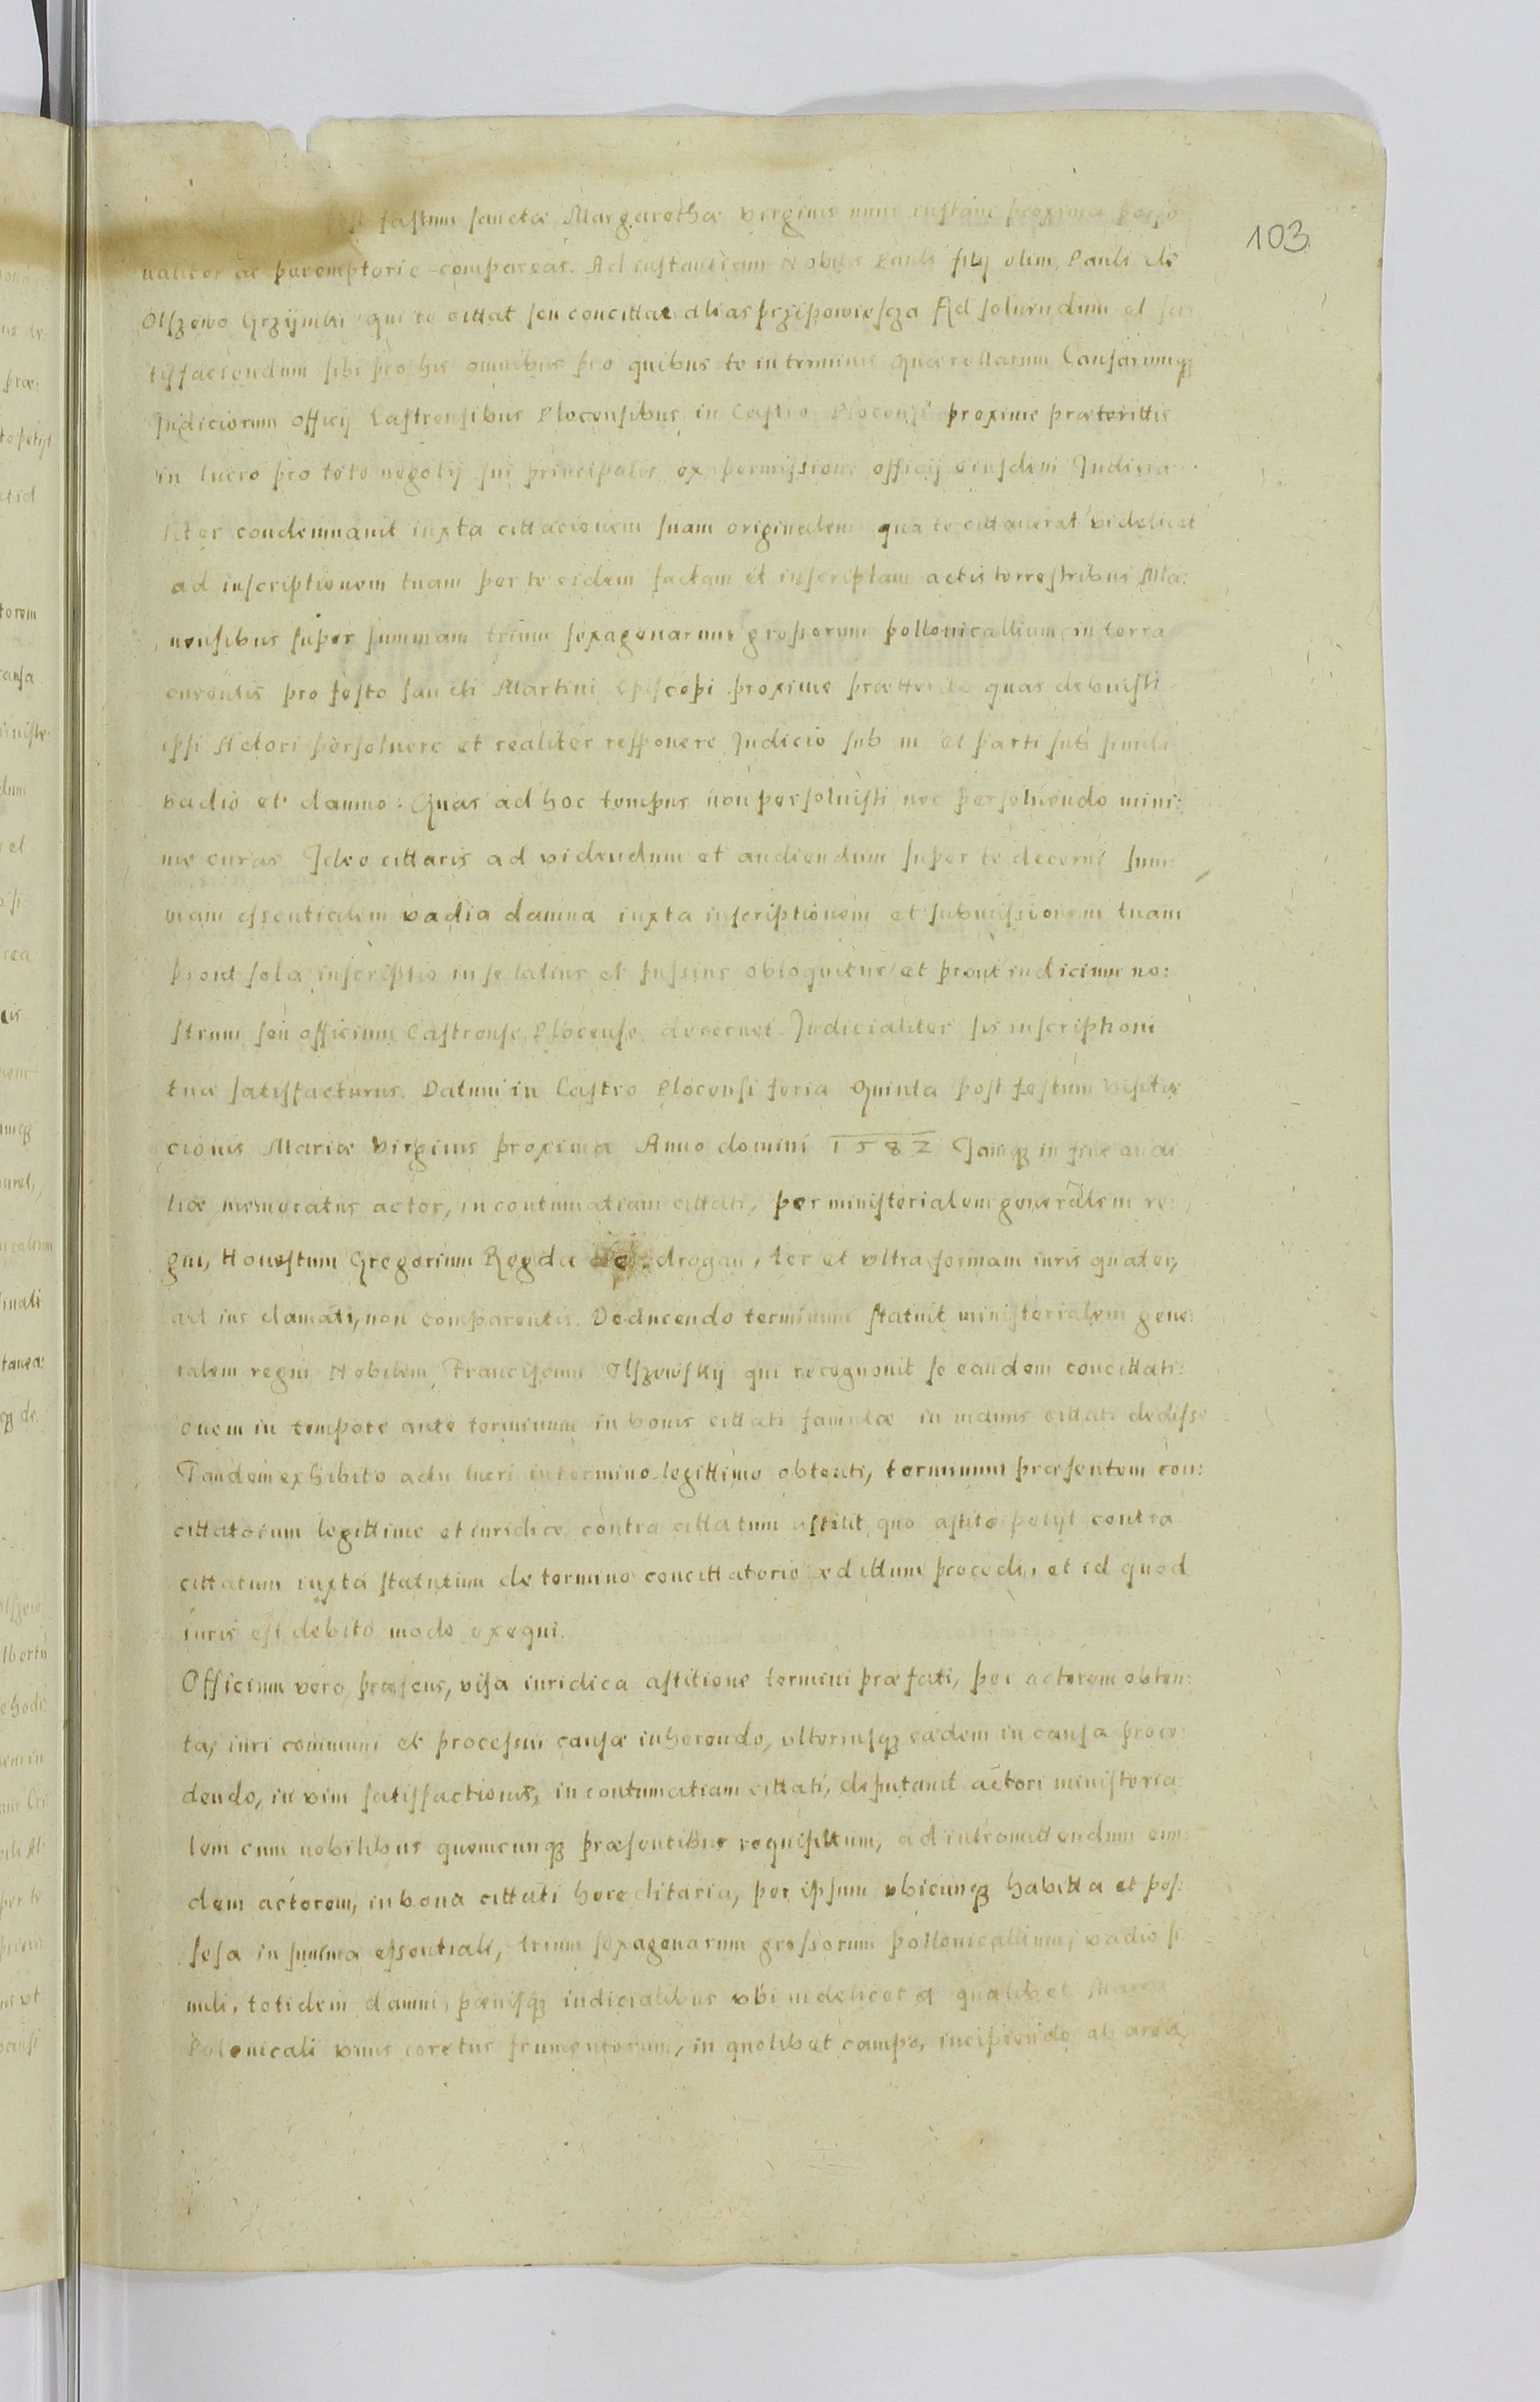 103
post festum sanctæ Margarethæ virginis nunc instan: proxima perso
naliter ac peremptorie compareas. Ad instantiam Nobilis Pauli filij olim Pauli de
Olszewo Grzÿmki qui te cittat seu concittat alias przipowiescza Ad soluendum et sa
tisfaciendum sibi pro his omnibus pro quibus te in terminis quærellarum Causarumq3
Judiciorum officij Castrensibus Plocensibus in Castro Plocensi proxime præterittis
in lucro pro toto negotij sui principalis ex permissione officij eiusdem Judicia:
liter condemnauit iuxta cittacionem suam originalem qua te cittauerat videlicet
ad inscriptionem tuam per te eidem factam et inscriptam actis terrestribus Mla:
uensibus super summam trium sexagenarum grossorum pollonicallium in terra
currentis pro festo sancti Martini Episcopi proxime prætteritto quas debuisti
ipsi Actori persoluere et realiter repponere Judicio sub iij et parti sub simili
vadio et damno: Quas ad hoc tempus non persoluisti nec persoluendo mini:
me curas Ideo cittaris ad videndum et audiendum super te decerni sum:
mam essentialem vadia damna iuxta inscriptionem et submissionem tuam
prout sola inscriptio in se latius et fussius obloquitur et prout iudicium no:
strum seu officium Castrense Plocense decernet Judicialiter sis inscriptioni
tuæ satisfacturus. Datum in Castro Plocensi feria Quinta post festum visita
cionis Mariæ Virginis proxima Anno domini 1582 Jamq3 in fine audi:
tiæ memoratus actor, in contumatiam cittati, per ministerialem generalem re:
gni, Honestum Gregorium Regda de drogan, ter et vltra formam iuris quater,
ad ius clamati, non comparentis. Deducendo terminum statuit ministerialem gene:
ralem regni Nobilem Franciscum Olszewskij qui recognouit se eandem concittati:
onem in tempore ante terminum in bonis cittati in manus cittati dedisse
Tandem exhibito actu lucri in termino legittimo obtenti, terminum præsentem con:
cittatorium legittime et iuridice contra cittatum astitit, quo astito petijt contra
cittatum iuxta statutum de termino concittatorio ædittum procedi, et id quod
iuris est debito modo exequi.
Officium vero præsens, visa iuridica astitione termini præfati, per actorem obten:
ta, iuri communi et processui causæ inherendo, vlteriusq3 eadem in causa proce:
dendo, in vim satisfactionis, in contumatiam cittati, deputauit actori ministeria
lem cum nobilibus quemcunq3 præsentibus requisittum, ad intromittendum eun:
dem actorem, in bona cittati hereditaria, per ipsum vbicunq3 habitta et pos:
sesa in summa essentiali, trium sexagenarum grossorum pollonicallium, vadio si
mili, totidem damni, pænisq3 iudicialibus vbi videlicet a qualibet Marca
Polonicali vnus coretus frumentorum, in quolibet campo, incipiendo ab area,